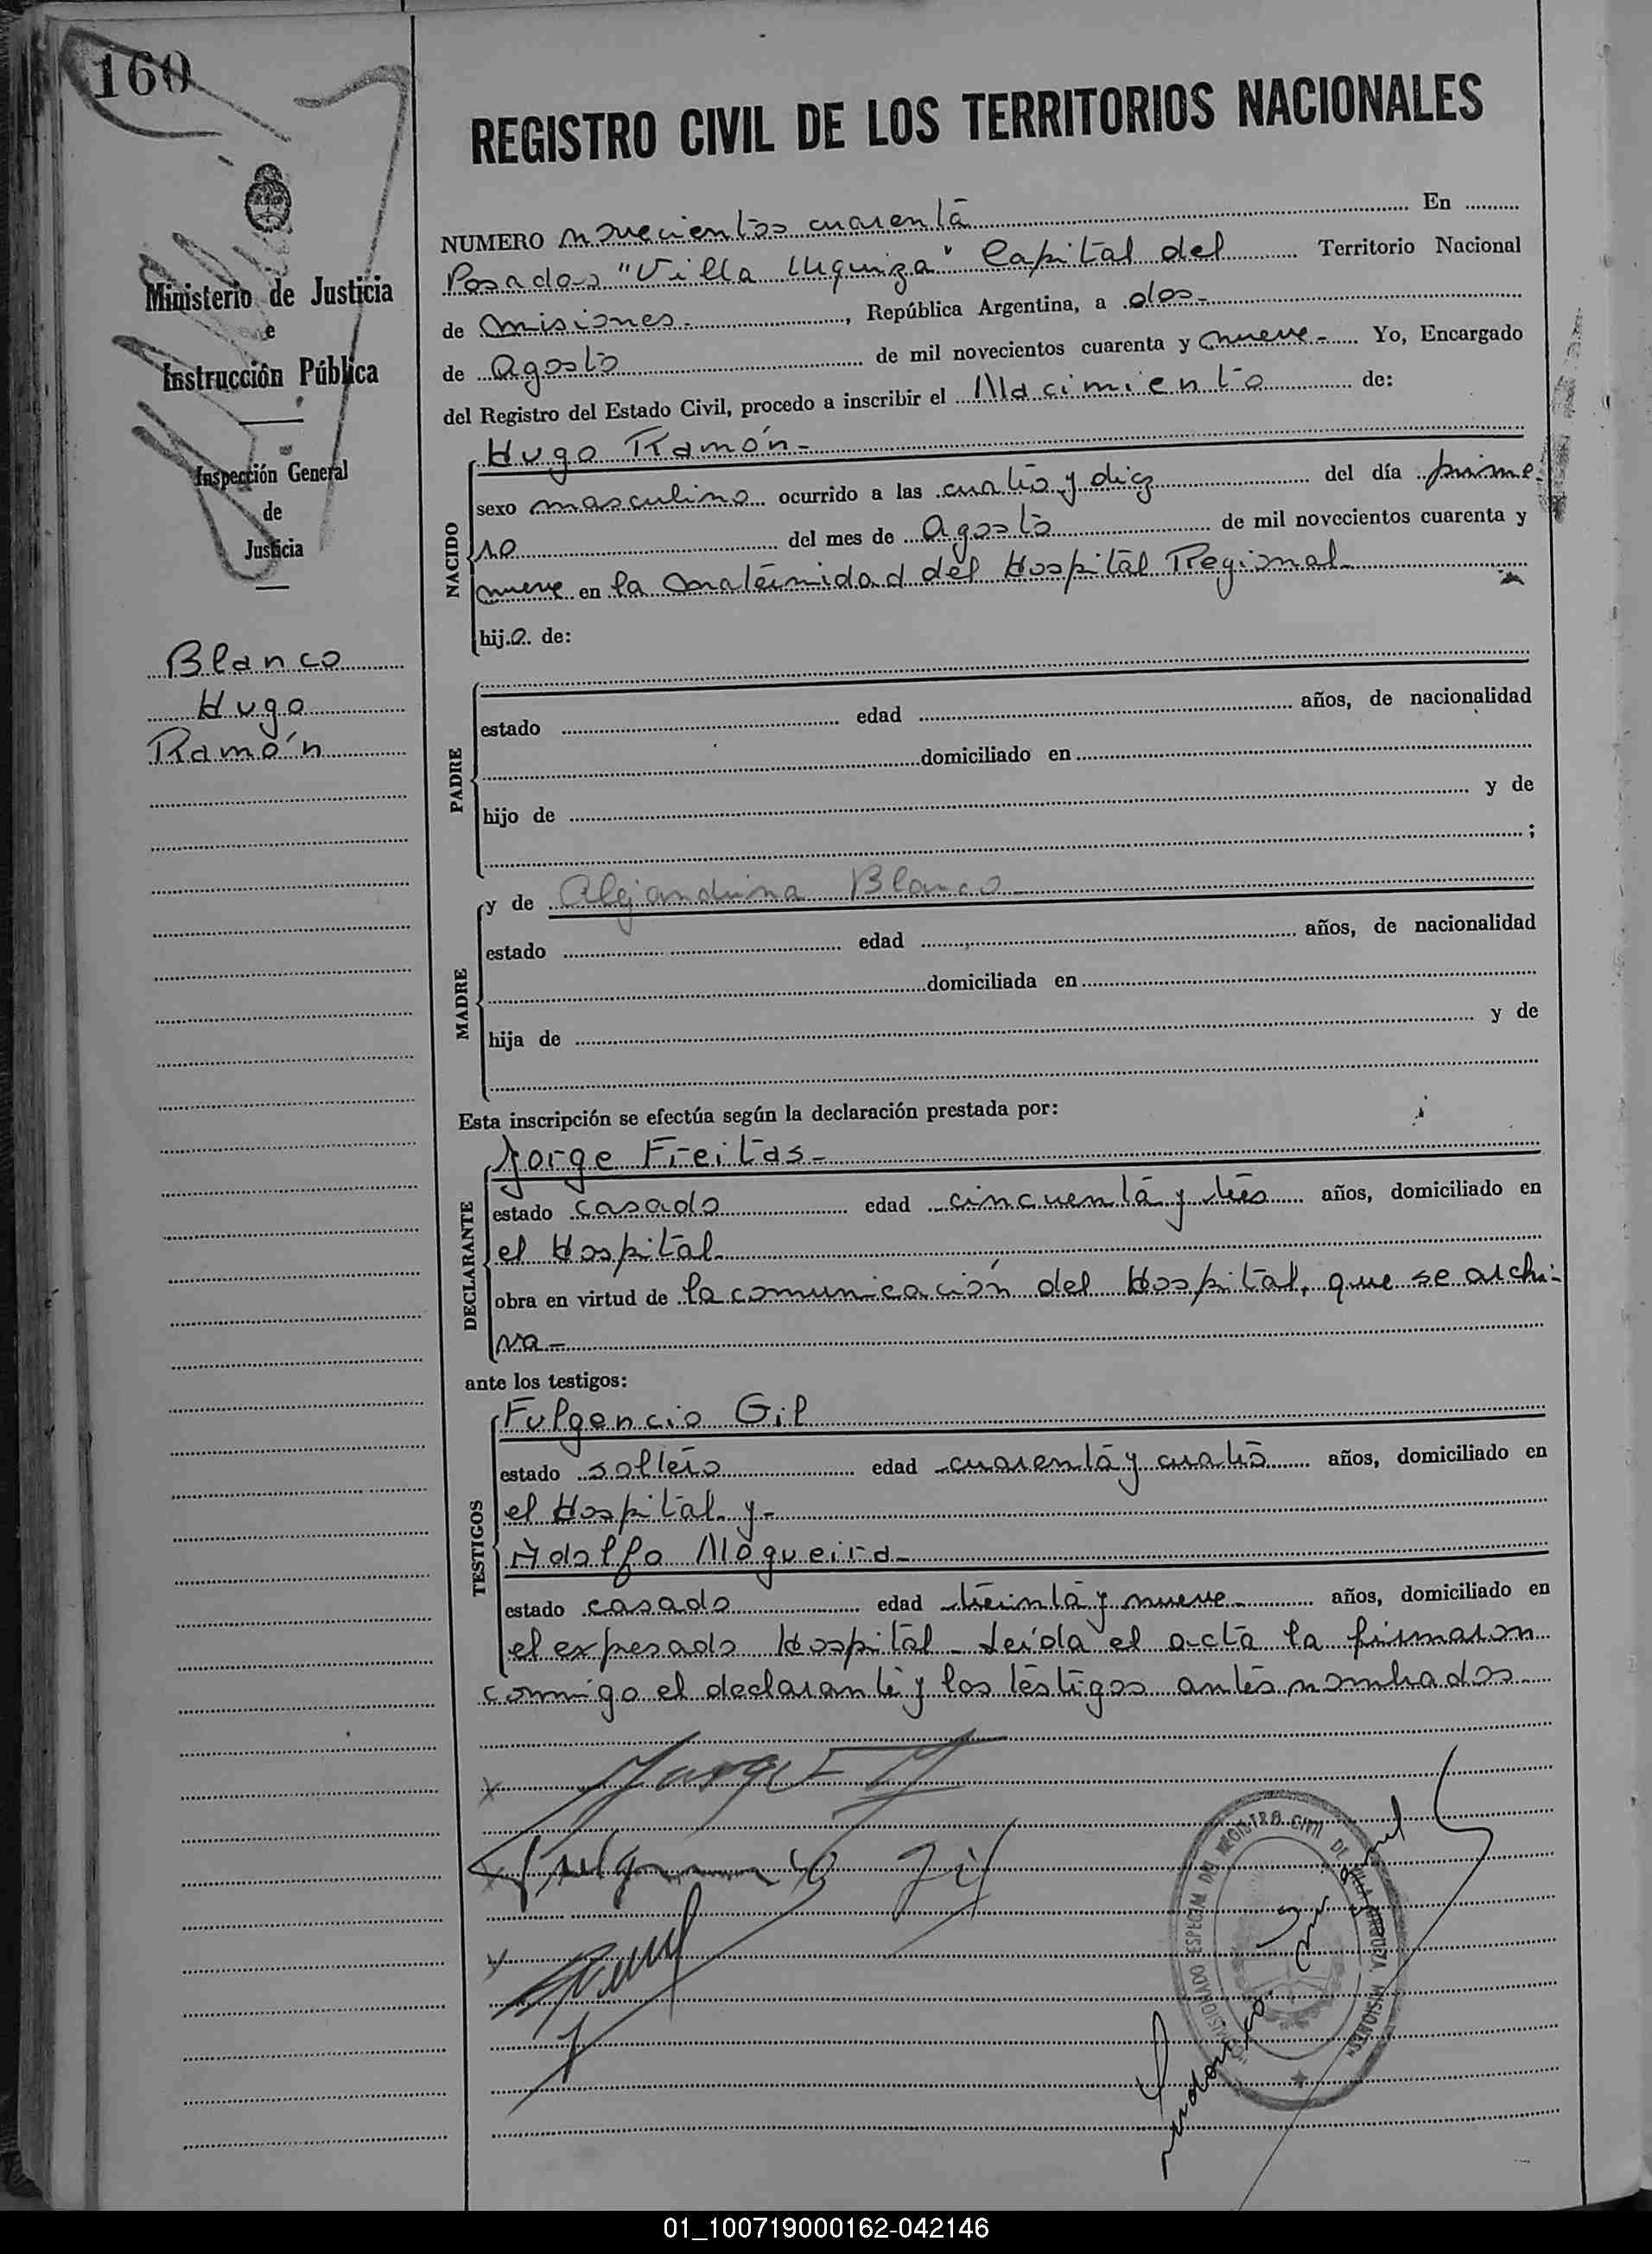 160
REGISTRO CIVIL DE LOS TERRITORIOS NACIONALES
Ministerio de Justicia
e
Instrucción Pública
Inspección General
de
Justicia
Blanco
Hugo
Ramón
NUMERO novecientos cuarenta En
Posadas "Villa Urquiza" Capital del Territorio Nacional
de misiones.-, República Argentina, a dos-
de Agosto de mil novecientos cuarenta y nueve- Yo, Encargado
del Registro del Estado Civil, procedo a inscribir el Nacimiento de:
NACIDO
Hugo Ramón-
sexo masculino ocurrido a las cuatro y diez del día prime-
ro del mes de Agosto de mil novecientos cuarenta y
nueve en la maternidad del Hospital Regional-
hijo de:
PADRE
estado edad años, de nacionalidad
domiciliado en
hijo de y de
;
MADRE
y de Alejandrina Blanco-
estado edad años, de nacionalidad
domiciliada en
hija de y de
Esta inscripción se efectúa según la declaración prestada por:
DECLARANTE
Jorge Freitas-
estado casado edad cincuenta y tres años, domiciliado en
el Hospital-
obra en virtud de la comunicación del Hospital, que se archi-
va-
ante los testigos:
TESTIGOS
Fulgencio Gil
estado soltero edad cuarenta y cuatro años, domiciliado en
el Hospital y-
Adolfo Nogueira-
estado casado edad treinta y nueve- años, domiciliado en
el expresado Hospital- Leída el acta la firmaron
conmigo el declarante y los testigos antes nombrados-
Fulgencio Gil
ESPECIAL DEL REGISTRO CIVIL DE VILLA URQUIZA MISIONES
01_100719000162-042146